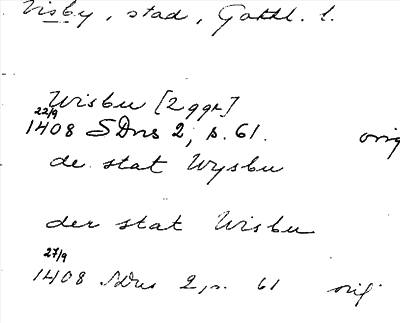 Visby, stad, Gottl. l.
Wisbu [2 ggr]
22/9
1408 SDns 2, s. 61. orig
de stat Wysbu
der stat Wisbu
27/9
1408 SDns 2, s. 61 orig